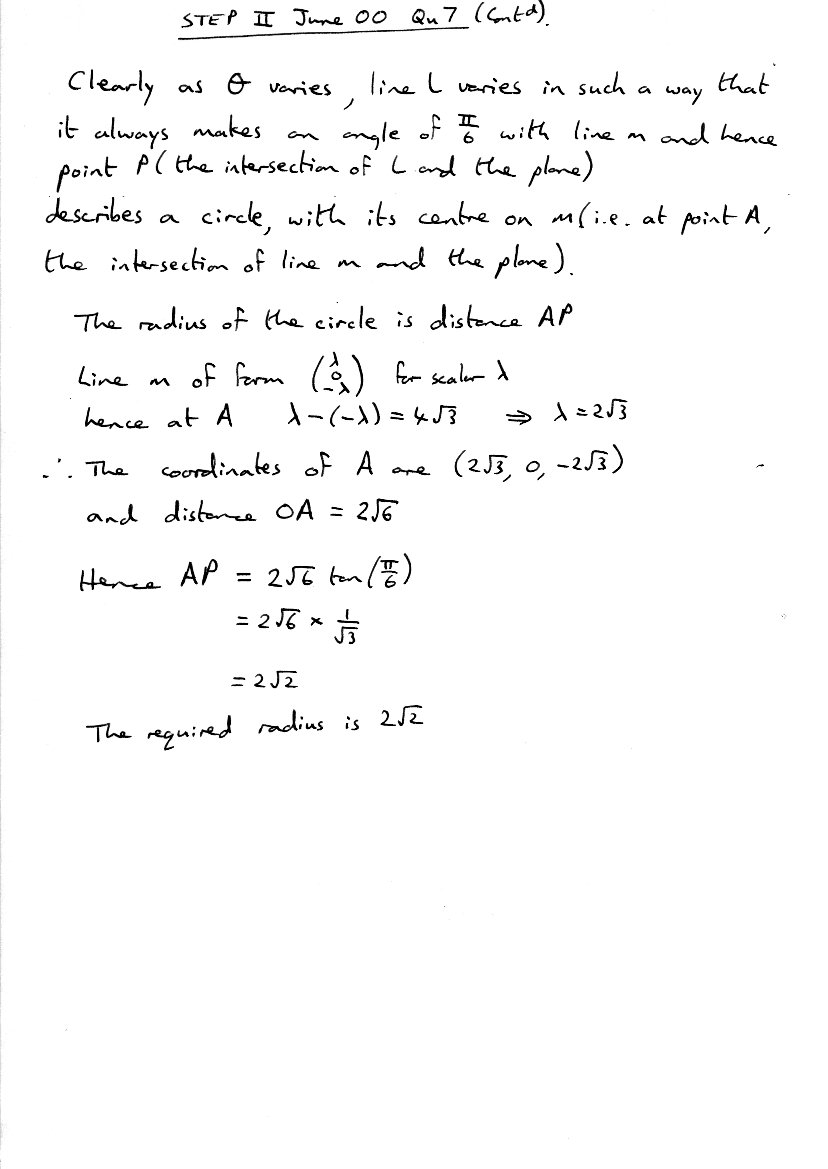 STEP II June 00 Qu 7 (Contd).
Clearly as θ varies, line L varies in such a way that
it always makes an angle of π/6 with line m and hence
point P (the intersection of L and the plane)
describes a circle, with its centre on m (i.e. at point A,
the intersection of line m and the plane).
The radius of the circle is distance AP
Line m of form (λ 0 -λ) for scalar λ
hence at A λ-(-λ) = 4√3 ⇒ λ = 2√3
∴ The coordinates of A are (2√3, 0, -2√3)
and distance OA = 2√6
Hence AP = 2√6 tan(π/6)
= 2√6 × 1/√3
= 2√2
The required radius is 2√2